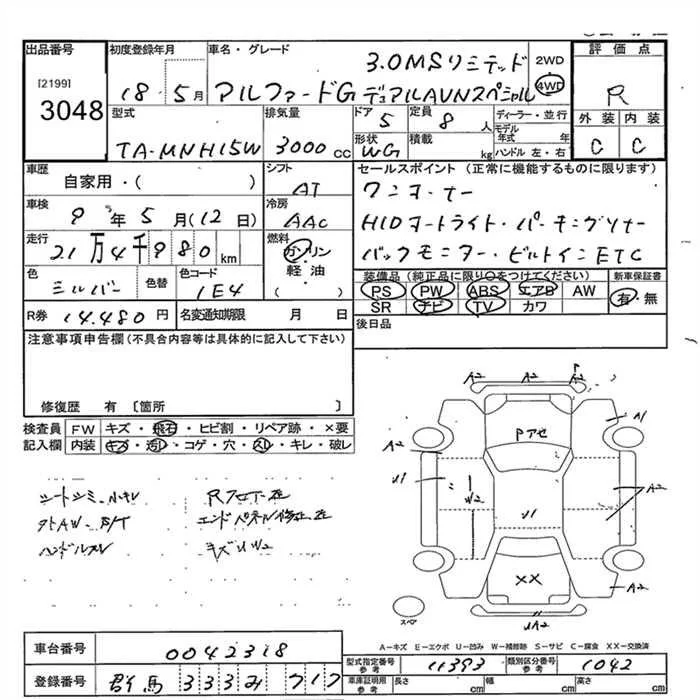 出品番号 初度登録年月 車名・グレード 評価点
[2199] 3.0MSリミテッド 2WD
3048 18・5月 アルファードG デュアルAVNスペシャル 4WD R
型式 排気量 ドア 5 定員 8人 ディーラー・並行 外装 内装
TA-MNH15W 3000CC 形状 WG 積載 kg モデル年式 年 ハンドル 左・右 C C
車歴 シフト セールスポイント(正常に機能するものに限ります)
自家用・( ) AT ワンオーナー
車検 9年5月(12日) 冷房 AAC HIDオートライト・パーキングソナー
走行 21万4千980km 燃料 ガソリン バックモニター・ビルトインETC
色 シルバー 色替 色コード 1E4 軽油 ( ) 装備品(純正品に限り○をつけてください) 新車保証書
PS PW ABS エアB AW 有・無
SR ナビ TV カワ
R券 14.480円 名変通知期限 月 日 後日品
注意事項申告欄(不具合内容等は具体的に記入して下さい)
修復歴 有〔箇所 〕
検査員 FW キズ・飛石・ヒビ割・リペア跡・×要
記入欄 内装 キズ・汚れ・コゲ・穴・スレ・キレ・破レ
A2 A2 A2
Pアせ A1
A2
U1 W2 U1 A2
XX A2
UA2
スペア
シートシミ・小キレ
ハンドルスレ
キズUW2
A-キズ E-エクボ U-凹み W-補修跡 S-サビ C-腐食 XX-交換済
車台番号 0042318
型式指定番号 参考 11393 類別区分番号 参考 1042
登録番号 群馬 333み 717
車庫証明用 参考 長さ cm 幅 cm 高さ cm